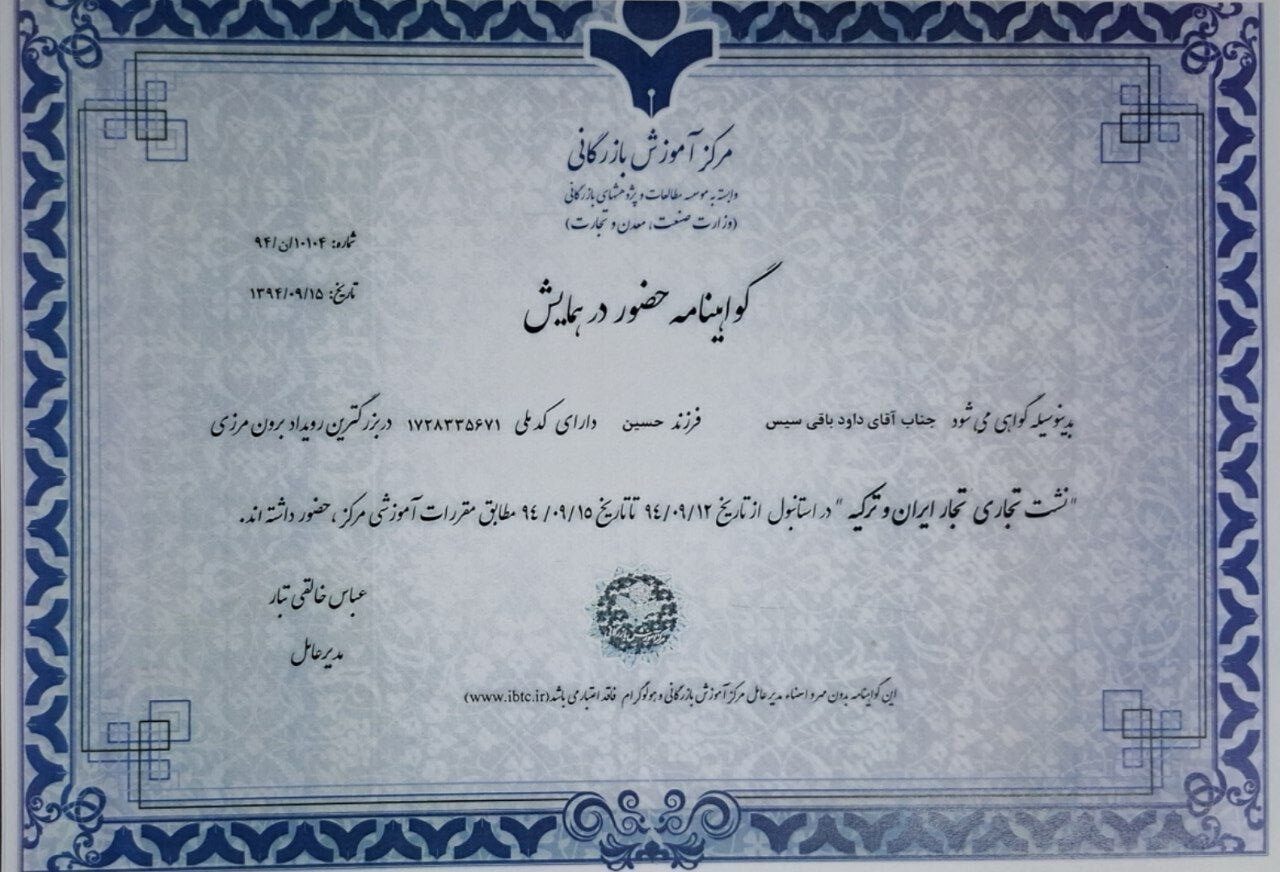 مرکز آموزش بازرگانی
وابسته به موسسه مطالعات و پژوهشهای بازرگانی
(وزارت صنعت، معدن و تجارت)
شماره: ۱۰۱۰۴/ن/۹۴
تاریخ: ۱۳۹۴/۰۹/۱۵
گواهینامه حضور در همایش
بدینوسیله گواهی می شود جناب آقای داود باقی سیس فرزند حسین دارای کد ملی ۱۷۲۸۳۳۵۶۷۱ در بزرگترین رویداد برون مرزی
"نشست تجاری تجار ایران و ترکیه" در استانبول از تاریخ ۹٤/۰۹/۱۲ تا تاریخ ۹٤/۰۹/۱۵ مطابق مقررات آموزشی مرکز، حضور داشته اند.
عباس خالقی تبار
مدیرعامل
این گواهینامه بدون مهر و امضاء مدیر عامل مرکز آموزش بازرگانی و هولوگرام فاقد اعتبار می باشد(www.ibtc.ir)